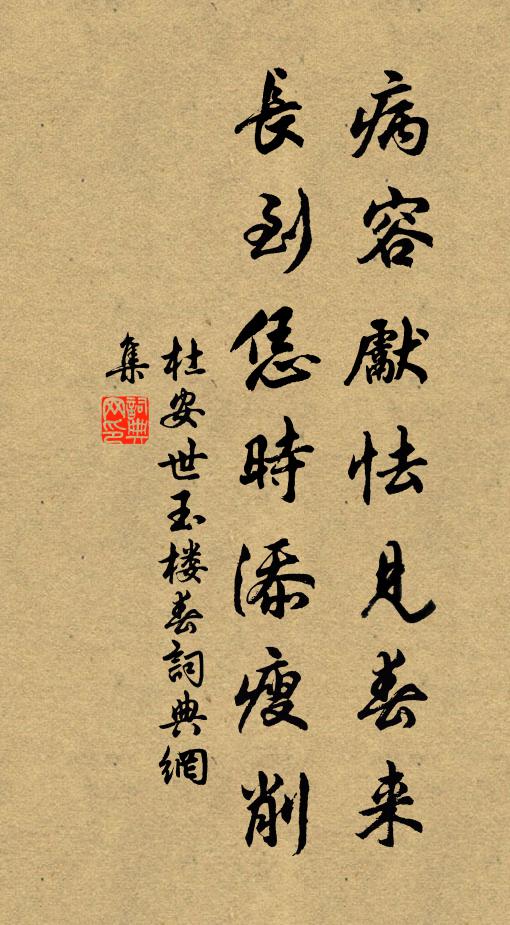 病容獻怯見春来
長到恁時添瘦削
杜安世玉楼春詞典網
集
詞典网印